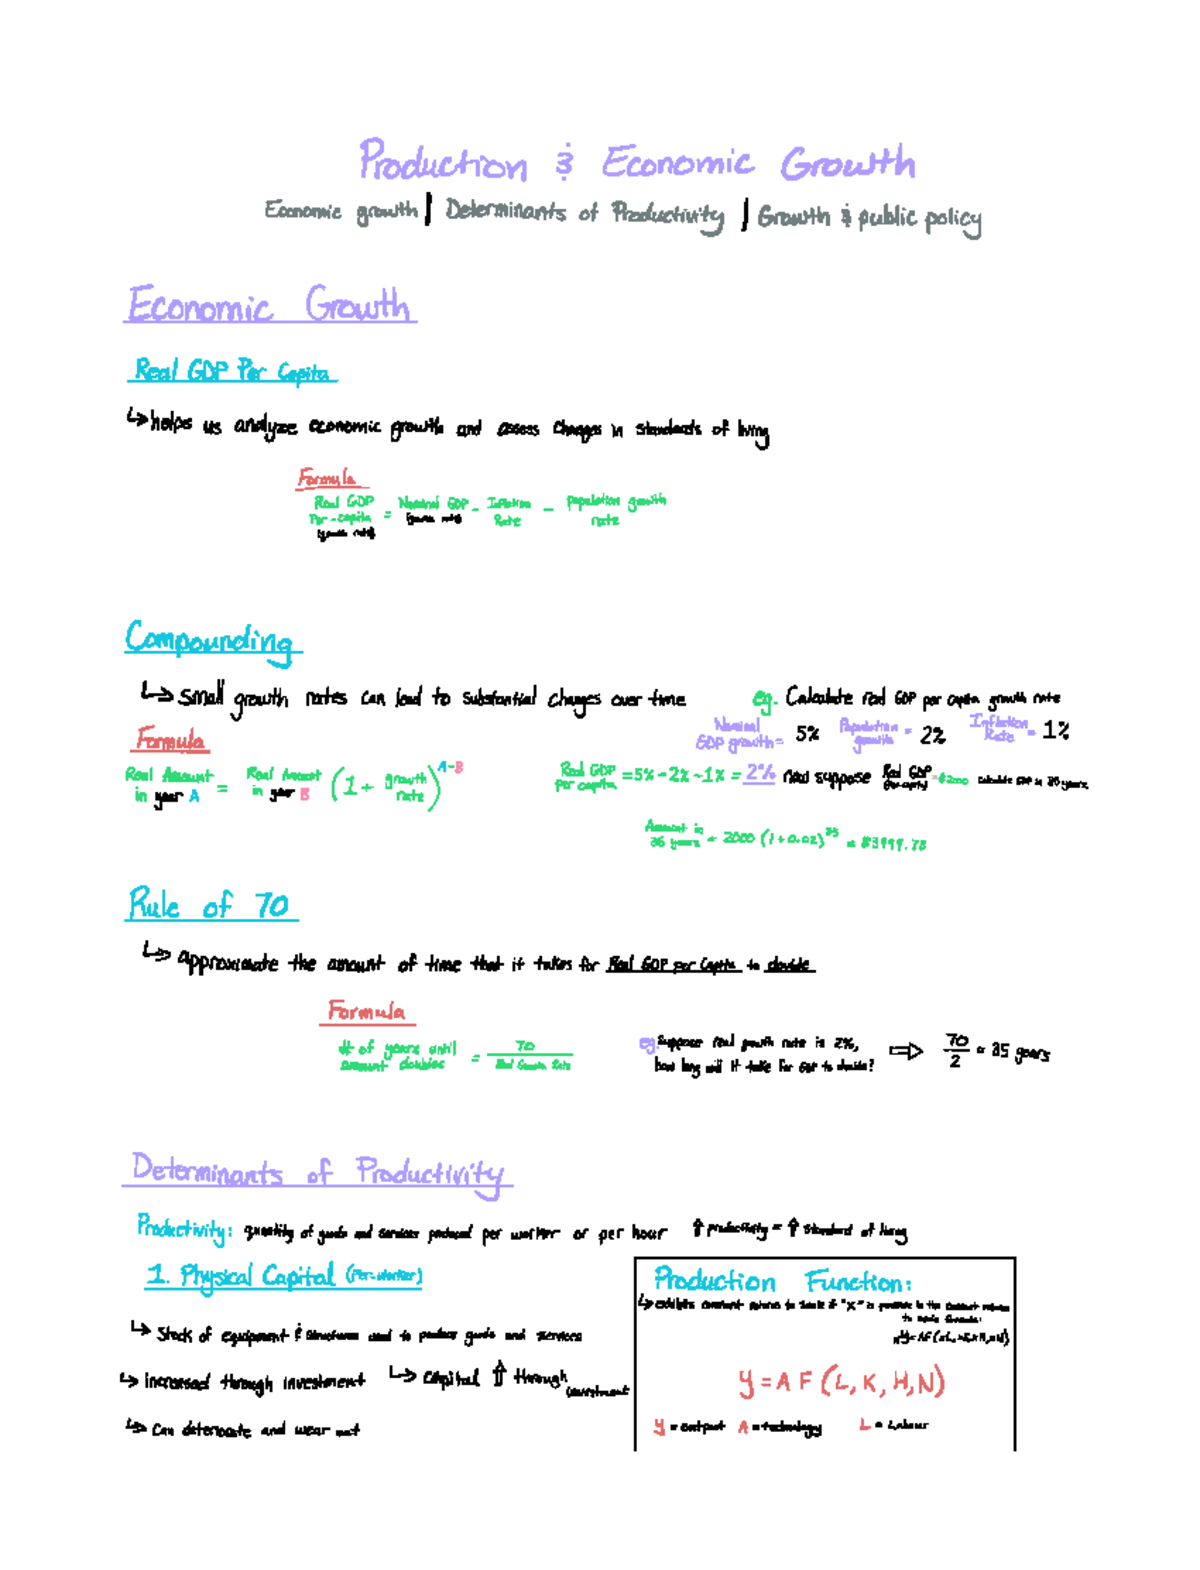 Production & Economic Growth
Economic growth | Determinants of Productivity | Growth & public policy
Economic Growth
Real GDP Per Capita
↳ helps us analyze economic growth and assess changes in standards of living
Formula
Real GDP Per-capita (growth rate) = Nominal GDP (growth rate) - Inflation Rate - Population growth rate
Compounding
↳ Small growth rates can lead to substantial changes over time
Formula
Real Amount in year A = Real Amount in year B (1 + growth rate)^A-B
eg. Calculate real GDP per capita growth rate
Nominal GDP growth = 5% Population growth = 2% Inflation Rate = 1%
Real GDP per capita = 5% - 2% - 1% = 2% now suppose Real GDP per capita = $2000 calculate GDP in 35 years
Amount in 35 years = 2000 (1 + 0.02)^35 = $3999.78
Rule of 70
↳ approximate the amount of time that it takes for Real GDP per Capita to double
Formula
# of years until amount doubles = 70 / Real Growth Rate
eg. Suppose real growth rate is 2%,
how long will it take for GDP to double?
⇒ 70/2 = 35 years
Determinants of Productivity
Productivity: quantity of goods and services produced per worker or per hour ↑ productivity = ↑ standard of living
1. Physical Capital (Per-worker)
↳ Stock of equipment & structures used to produce goods and services
↳ increased through investment ↳ capital ↑ through investment
↳ Can deteriorate and wear out
Production Function:
↳ exhibits constant returns to scale if "X" is
XY = AF(XL, XK, XH, XN)
Y = A F (L, K, H, N)
Y = output A = technology L = Labour